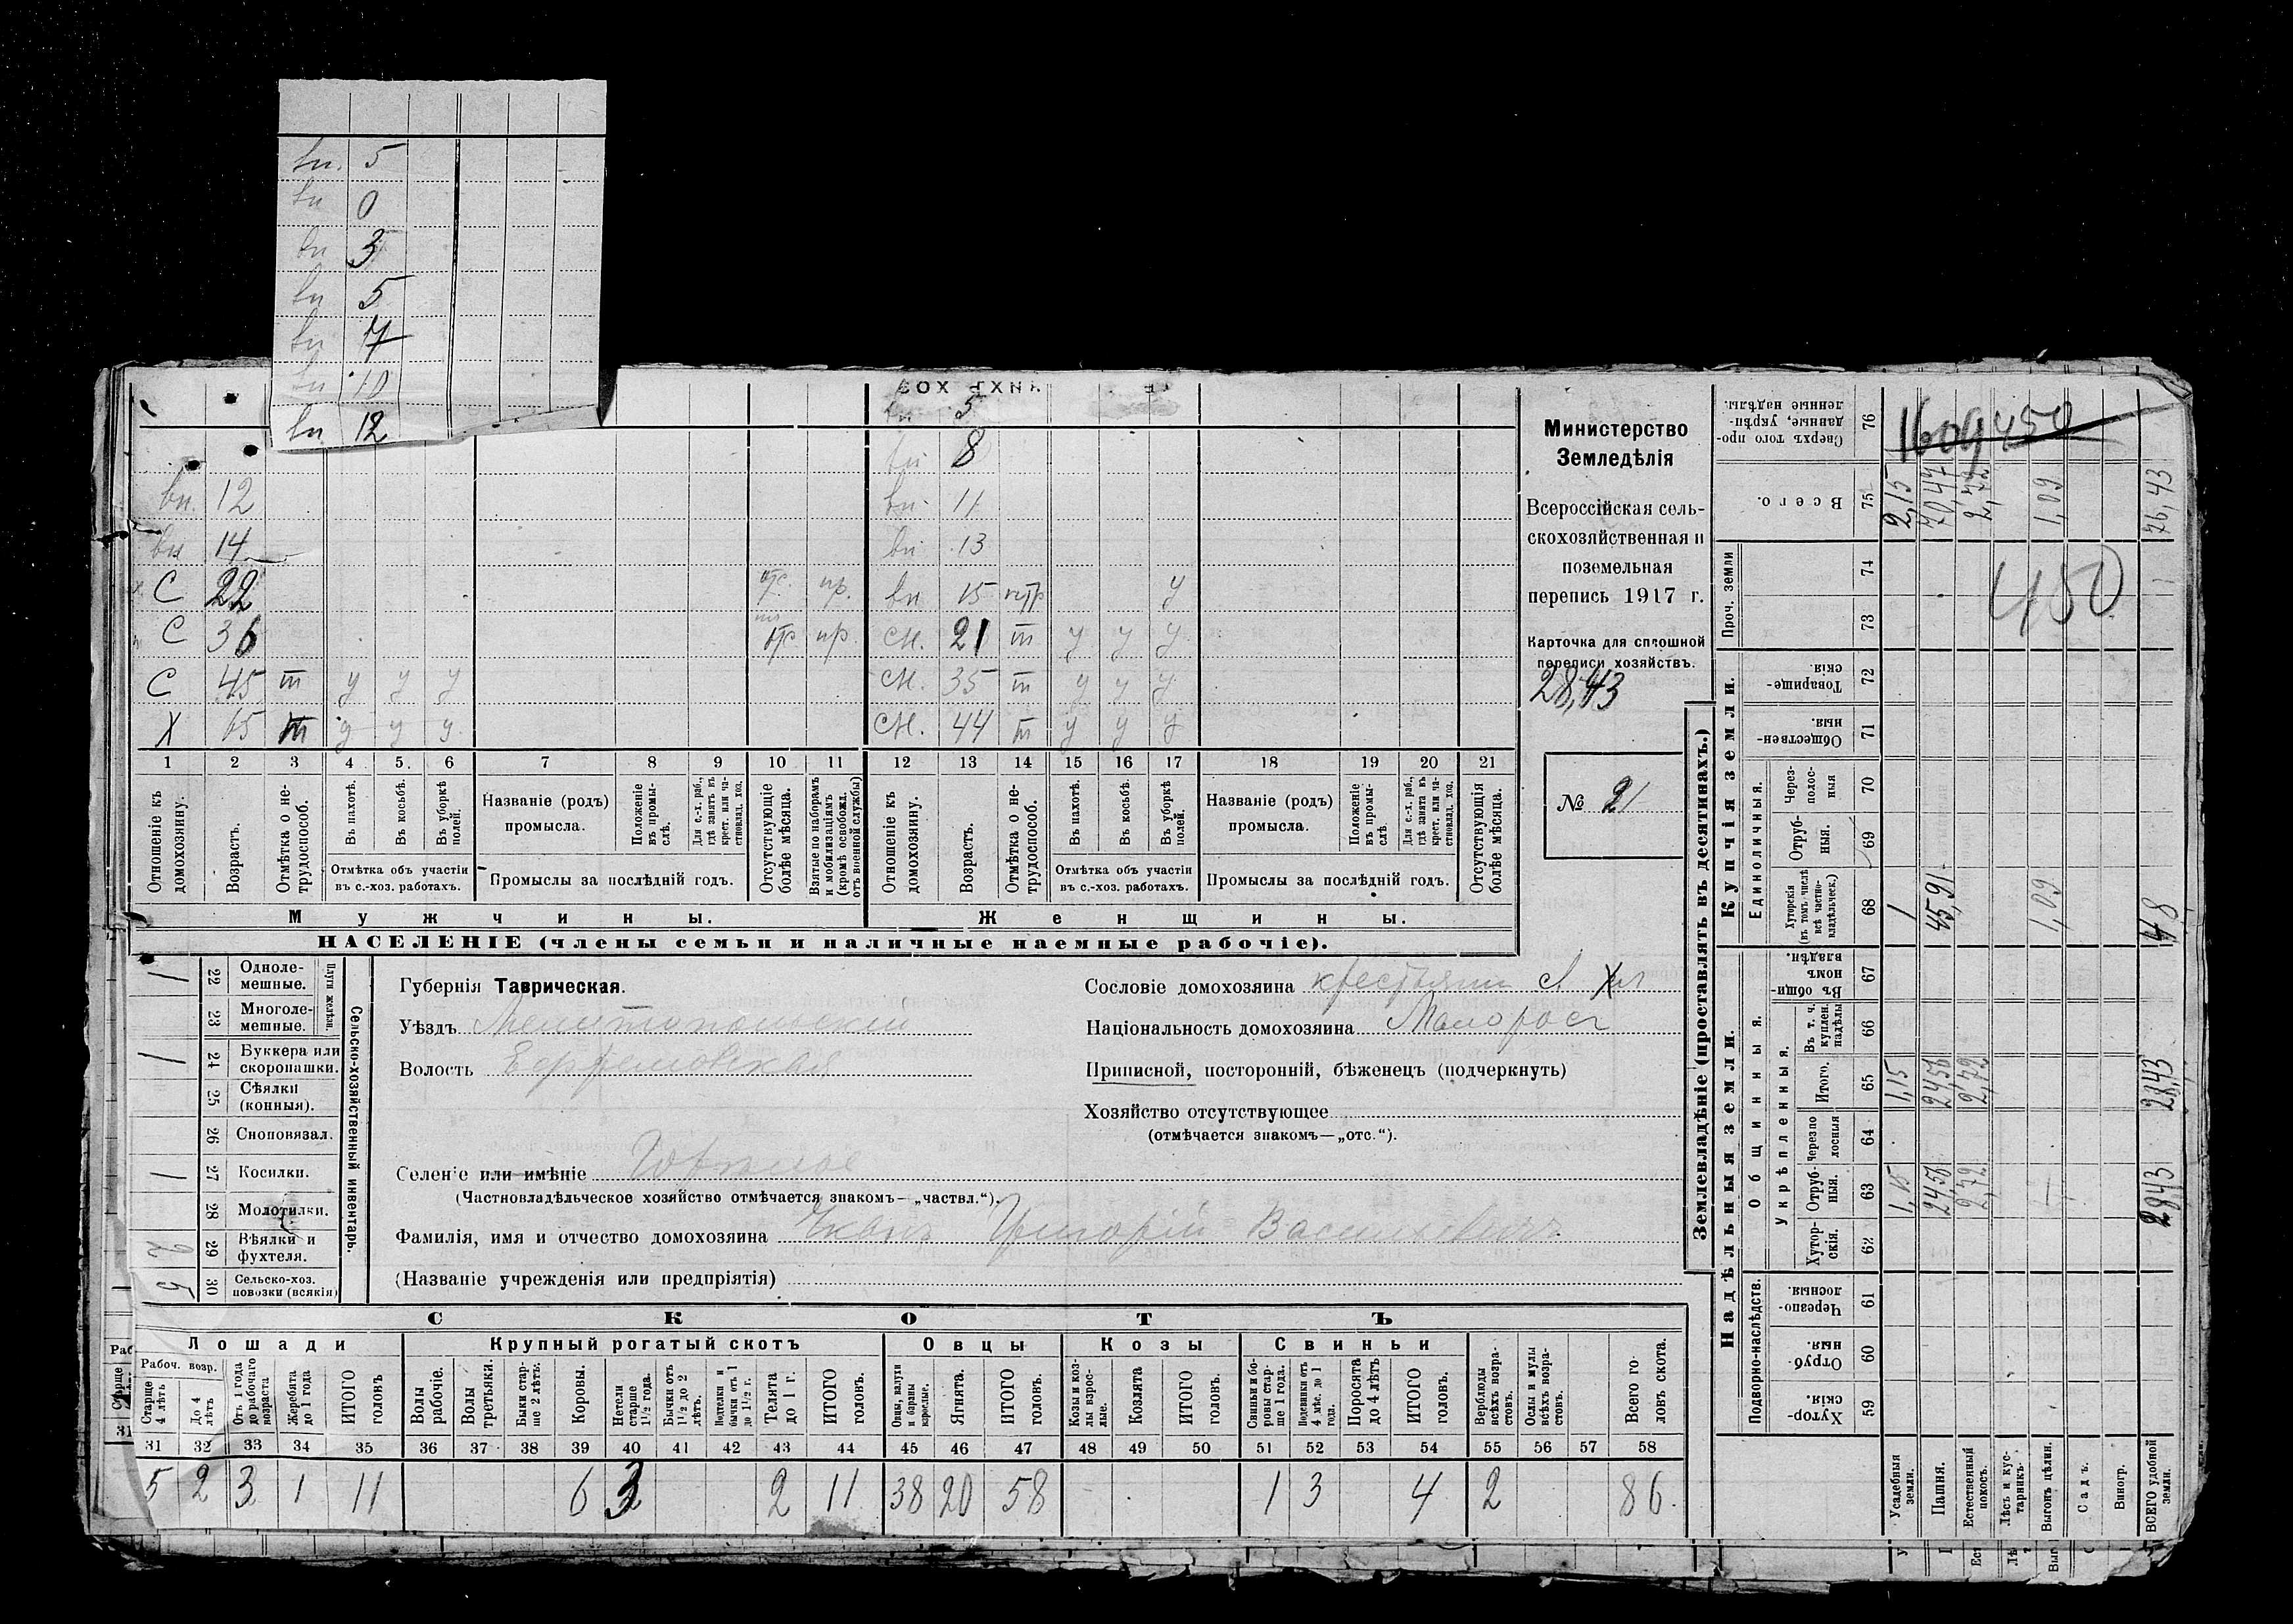 вн. 5
вн 0
вн 3
вн 5
вн 7
вн 10
вн. 12
вн 5
вн 8
вн. 12 вн. 11
вн 14 вн 13
С 22 отс. пр. вн. 15 нетр у
С 36 отс пр. сн. 21 т у у у
С 45 т у у у сн. 35 т у у у
Х 65 т у у у сн. 44 т у у у
1 2 3 4 5. 6 7 8 9 10 11 12 13 14 15 16 17 18 19 20 21
Отношеніе къ домохозяину.
Возрастъ.
Отмѣтка о не-трудоспособ.
Въ пахотѣ.
Въ косьбѣ.
Въ уборкѣ полей.
Отмѣтка объ участіи въ с.-хоз. работахъ.
Названіе (родъ) промысла.
Положеніе въ промы-слѣ.
Для с.-х. раб., гдѣ занятъ въ крест. или ча-стновлад. хоз.
Промыслы за послѣдній годъ.
Отсутствующіе болѣе мѣсяца.
Взятые по наборамъ и мобилизаціямъ (кромѣ освобожд. отъ военной службы)
Отношеніе къ домохозяину.
Возрастъ.
Отмѣтка о не-трудоспособ.
Въ пахотѣ.
Въ косьбѣ.
Въ уборкѣ полей.
Отмѣтка объ участіи въ с.-хоз. работахъ.
Названіе (родъ) промысла.
Положеніе въ промы-слѣ
Для с.-х. раб., гдѣ занята въ крест. или ча-стновлад. хоз.
Промыслы за послѣдній годъ.
Отсутствующія болѣе мѣсяца.
Мужчины. Женщины.
НАСЕЛЕНІЕ (члены семьи и наличные наемные рабочіе).
Министерство
Земледѣлія
Всероссійская сель-
скохозяйственная и
поземельная
перепись 1917 г.
Карточка для сплошной
переписи хозяйствъ.
28,43
№ 21
Сельско-хозяйственный инвентарь.
Плуги желѣзн.
1 22 Одноле-мешные.
23 Многоле-мешные.
1 24 Буккера или скоропашки.
25 Сѣялки (конныя).
26 Сноповязал.
1 27 Косилки.
28 Молотилки.
29 Вѣялки и фухтеля.
30 Сельско-хоз. повозки (всякія)
Губернія Таврическая.
Уѣздъ Мелитопольскій
Волость Ефремовская
Селеніе или имѣніе
(Частновладѣльческое хозяйство отмѣчается знакомъ—„частвл.“).
Сословіе домохозяина крестьянин
Національность домохозяина Малоросс
Приписной, посторонній, бѣженецъ (подчеркнуть)
Хозяйство отсутствующее
(отмѣчается знакомъ—„отс.“).
Фамилія, имя и отчество домохозяина Чканъ Григорій Васильевичъ
(Названіе учрежденія или предпріятія)
СКОТЪ
Лошади Крупный рогатый скотъ Овцы Козы Свиньи
Рабоч. возр.
Старше 4 лѣтъ
До 4 лѣтъ
Отъ 1 года до рабочаго возраста
Жеребята до 1 года
ИТОГО головъ
Волы рабочіе.
Волы третьяки.
Быки стар-ше 2 лѣтъ.
Коровы.
Нетели старше 1½ года.
Бычки отъ 1½ до 2 лѣтъ.
Подтелки и бычки отъ 1 до 1½ г.
Телята до 1 г.
ИТОГО головъ.
Овцы, валухи и бараны взрослые.
Ягнята.
ИТОГО головъ.
Козы и коз-лы взрос-лые.
Козлята
ИТОГО головъ.
Свиньи и бо-ровы стар-ше 1 года.
Подсвинки отъ 4 мѣс. до 1 года.
Поросята до 4 лѣтъ
ИТОГО головъ.
Верблюды всѣхъ возра-стовъ.
Ослы и мулы всѣхъ возра-стовъ.
Всего го-ловъ скота.
31 32 33 34 35 36 37 38 39 40 41 42 43 44 45 46 47 48 49 50 51 52 53 54 55 56 57 58
5 2 3 1 11 6 3 2 11 38 20 58 1 3 4 2 86
Землевладѣніе (проставлять въ десятинахъ.)
Купчія земли.
Надѣльныя земли.
76 Сверхъ того про-данные, укрѣп-ленные надѣлы.
1609 450
75 Всего.
2,15 70,47 2,72 1,09 76,43
Проч. земли
74
73
450
72 Товарище-скія.
71 Обществен-ныя.
Единоличныя.
70 Через-полос-ныя
69 Отруб-ныя.
68 Хуторскія (въ томъ числѣ всѣ частно-владѣльческ.)
1 45,91 1,09 48
67 Въ общи-номъ владѣн.
Общинныя.
Укрѣпленныя.
66 Въ т. ч. куплен. надѣлы
65 Итого.
1,15 24,56 2,72 28,43
64 Черезпо лосныя
63 Отруб-ныя.
1,15 24,56 2,72 28,43
62 Хутор-скія.
Подворно-наслѣдств.
61 Черезпо-лосныя.
60 Отруб-ныя.
59 Хутор-скія.
Усадебныя земли.
Пашня.
Естественный покосъ.
Лѣсъ и кус-тарникъ.
Выгонъ цѣлин.
Садъ.
Виногр.
ВСЕГО удобной земли.